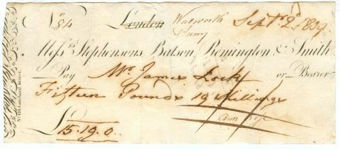 No. 84 London Walworth Sept. 2. 1809
Surry
Messrs. Stephensons Batson Remington & Smith
Pay Mr. James Lock or Bearer
Fifteen Pounds 19 Shillings
£ 15.19.0